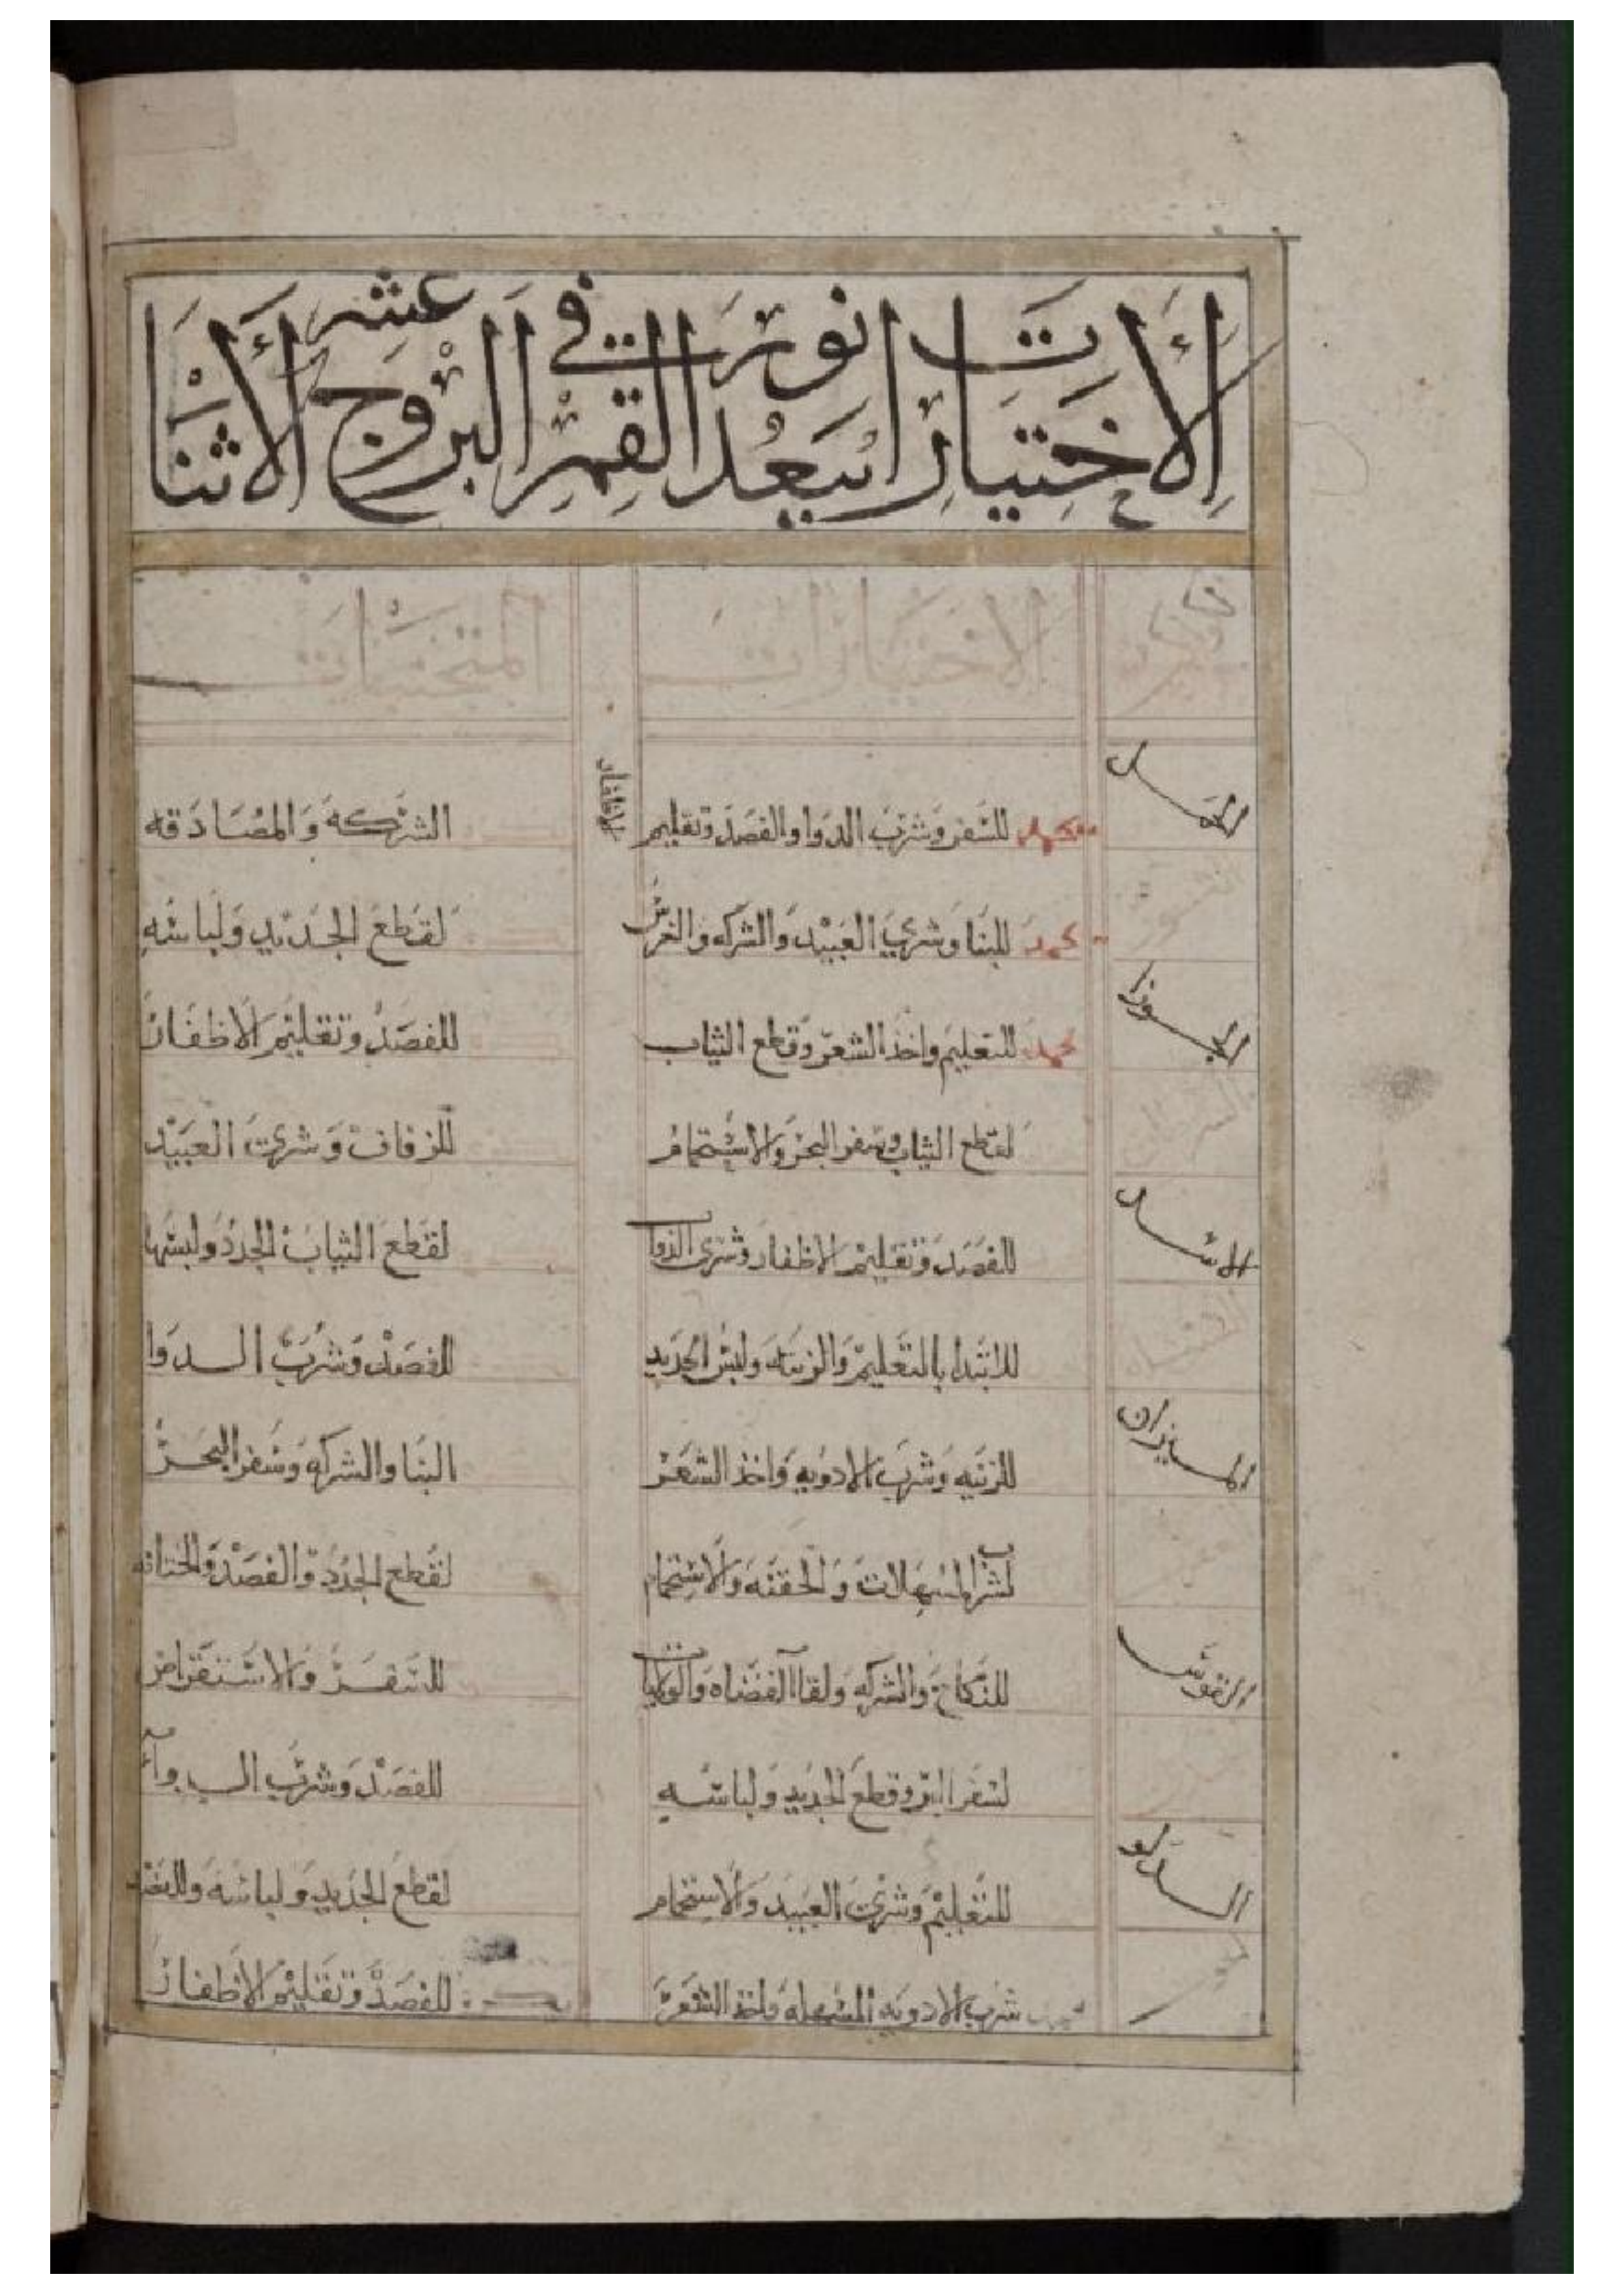 الاختيارات
في البروج الاثنا عشر
الاختيارات المتجنبات
الحمل يحمد للسفر وشرب الدوا والفصد وتقليم الاظفار الشركه والمصادقه
يحمد للبنا وشري العبيد والشركه والغرس لقطع الجديد ولباسه
الجوزا يحمد للتعليم واخذ الشعر وقطع الثياب للفصد وتقليم الاظفار
لقطع الثياب وسفر البحر والاستحمام للزفاف وشري العبيد
الاسد للفصد وتقليم الاظفار وشري لقطع الثياب الجدد ولبسها
للابتدا بالتعليم والزينه ولبس الجديد للفصد وشرب الدوا
الميزان للزينه وشرب الادويه واخذ الشعر البنا والشركه وسفر البحر
لشرب المسهلات والحقنه والاستحمام لقطع الجدد والفصد والختانه
القوس للنكاح والشركه ولقا القضاه للسفر والاستقراض
لسفر البر وقطع الجديد ولباسه للفصد وشرب الدوآء
الدلو للتعليم وشري العبيد والاستحمام لقطع الجديد ولباسه
شرب الادويه المسهله واخذ الشعر للفصد وتقليم الاظفار